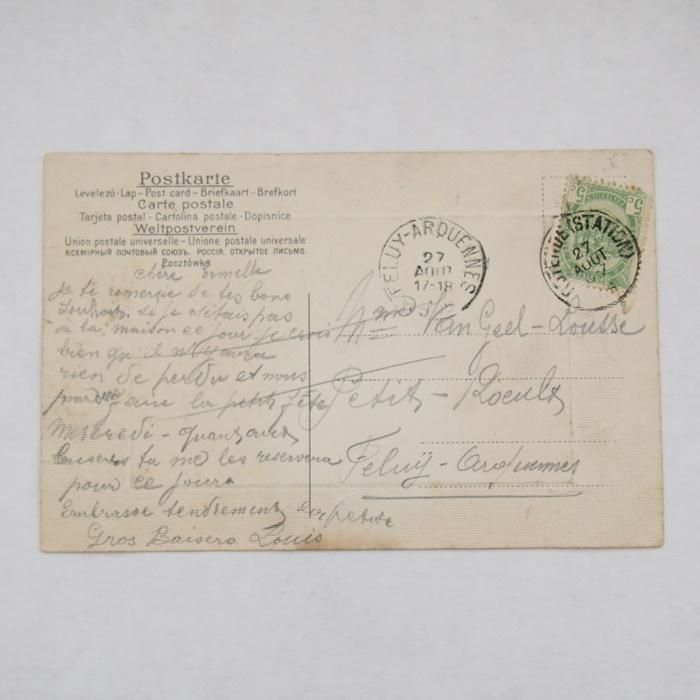 Postkarte
Levelező-Lap - Post card - Briefkaart - Brefkort
Carte postale
Tarjeta postal - Cartolina postale - Dopisnice
Weltpostverein
Union postale universelle - Unione postale universale
ВСЕМІРНЫЙ ПОЧТОВЫЙ СОЮЗЪ. РОССІЯ. ОТКРЫТОЕ ПИСЬМО.
Pocztówka
chère
je te remercie de tes bons
Souhaits. Si je n'étais pas
à la maison ce jour je crois
bien qu'il n'y aura
rien de perdu et nous
la petite fête
Mercredi - quant aux
baisers tu me les reserveras
pour ce jour
Embrasse tendrement la petite
Gros Baisers Louis
Mme Van Geel-Lousse
Petit-Roeulx
Feluÿ-Arquennes
FELUY-ARQUENNES
27
AOUT
17-18
(STATION)
27
AOUT
5
5